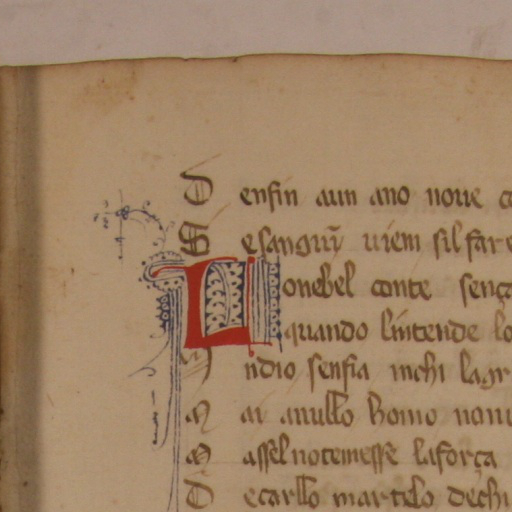 D enfin aun ano noue co
S esanguȳ uiem sil fare
L onebel conte senç
quando lintende lo
I ndio senfia inchi lagr
M ai anullo homo nonu
M assel notemesse laforça
D ecarllo martelo dechi